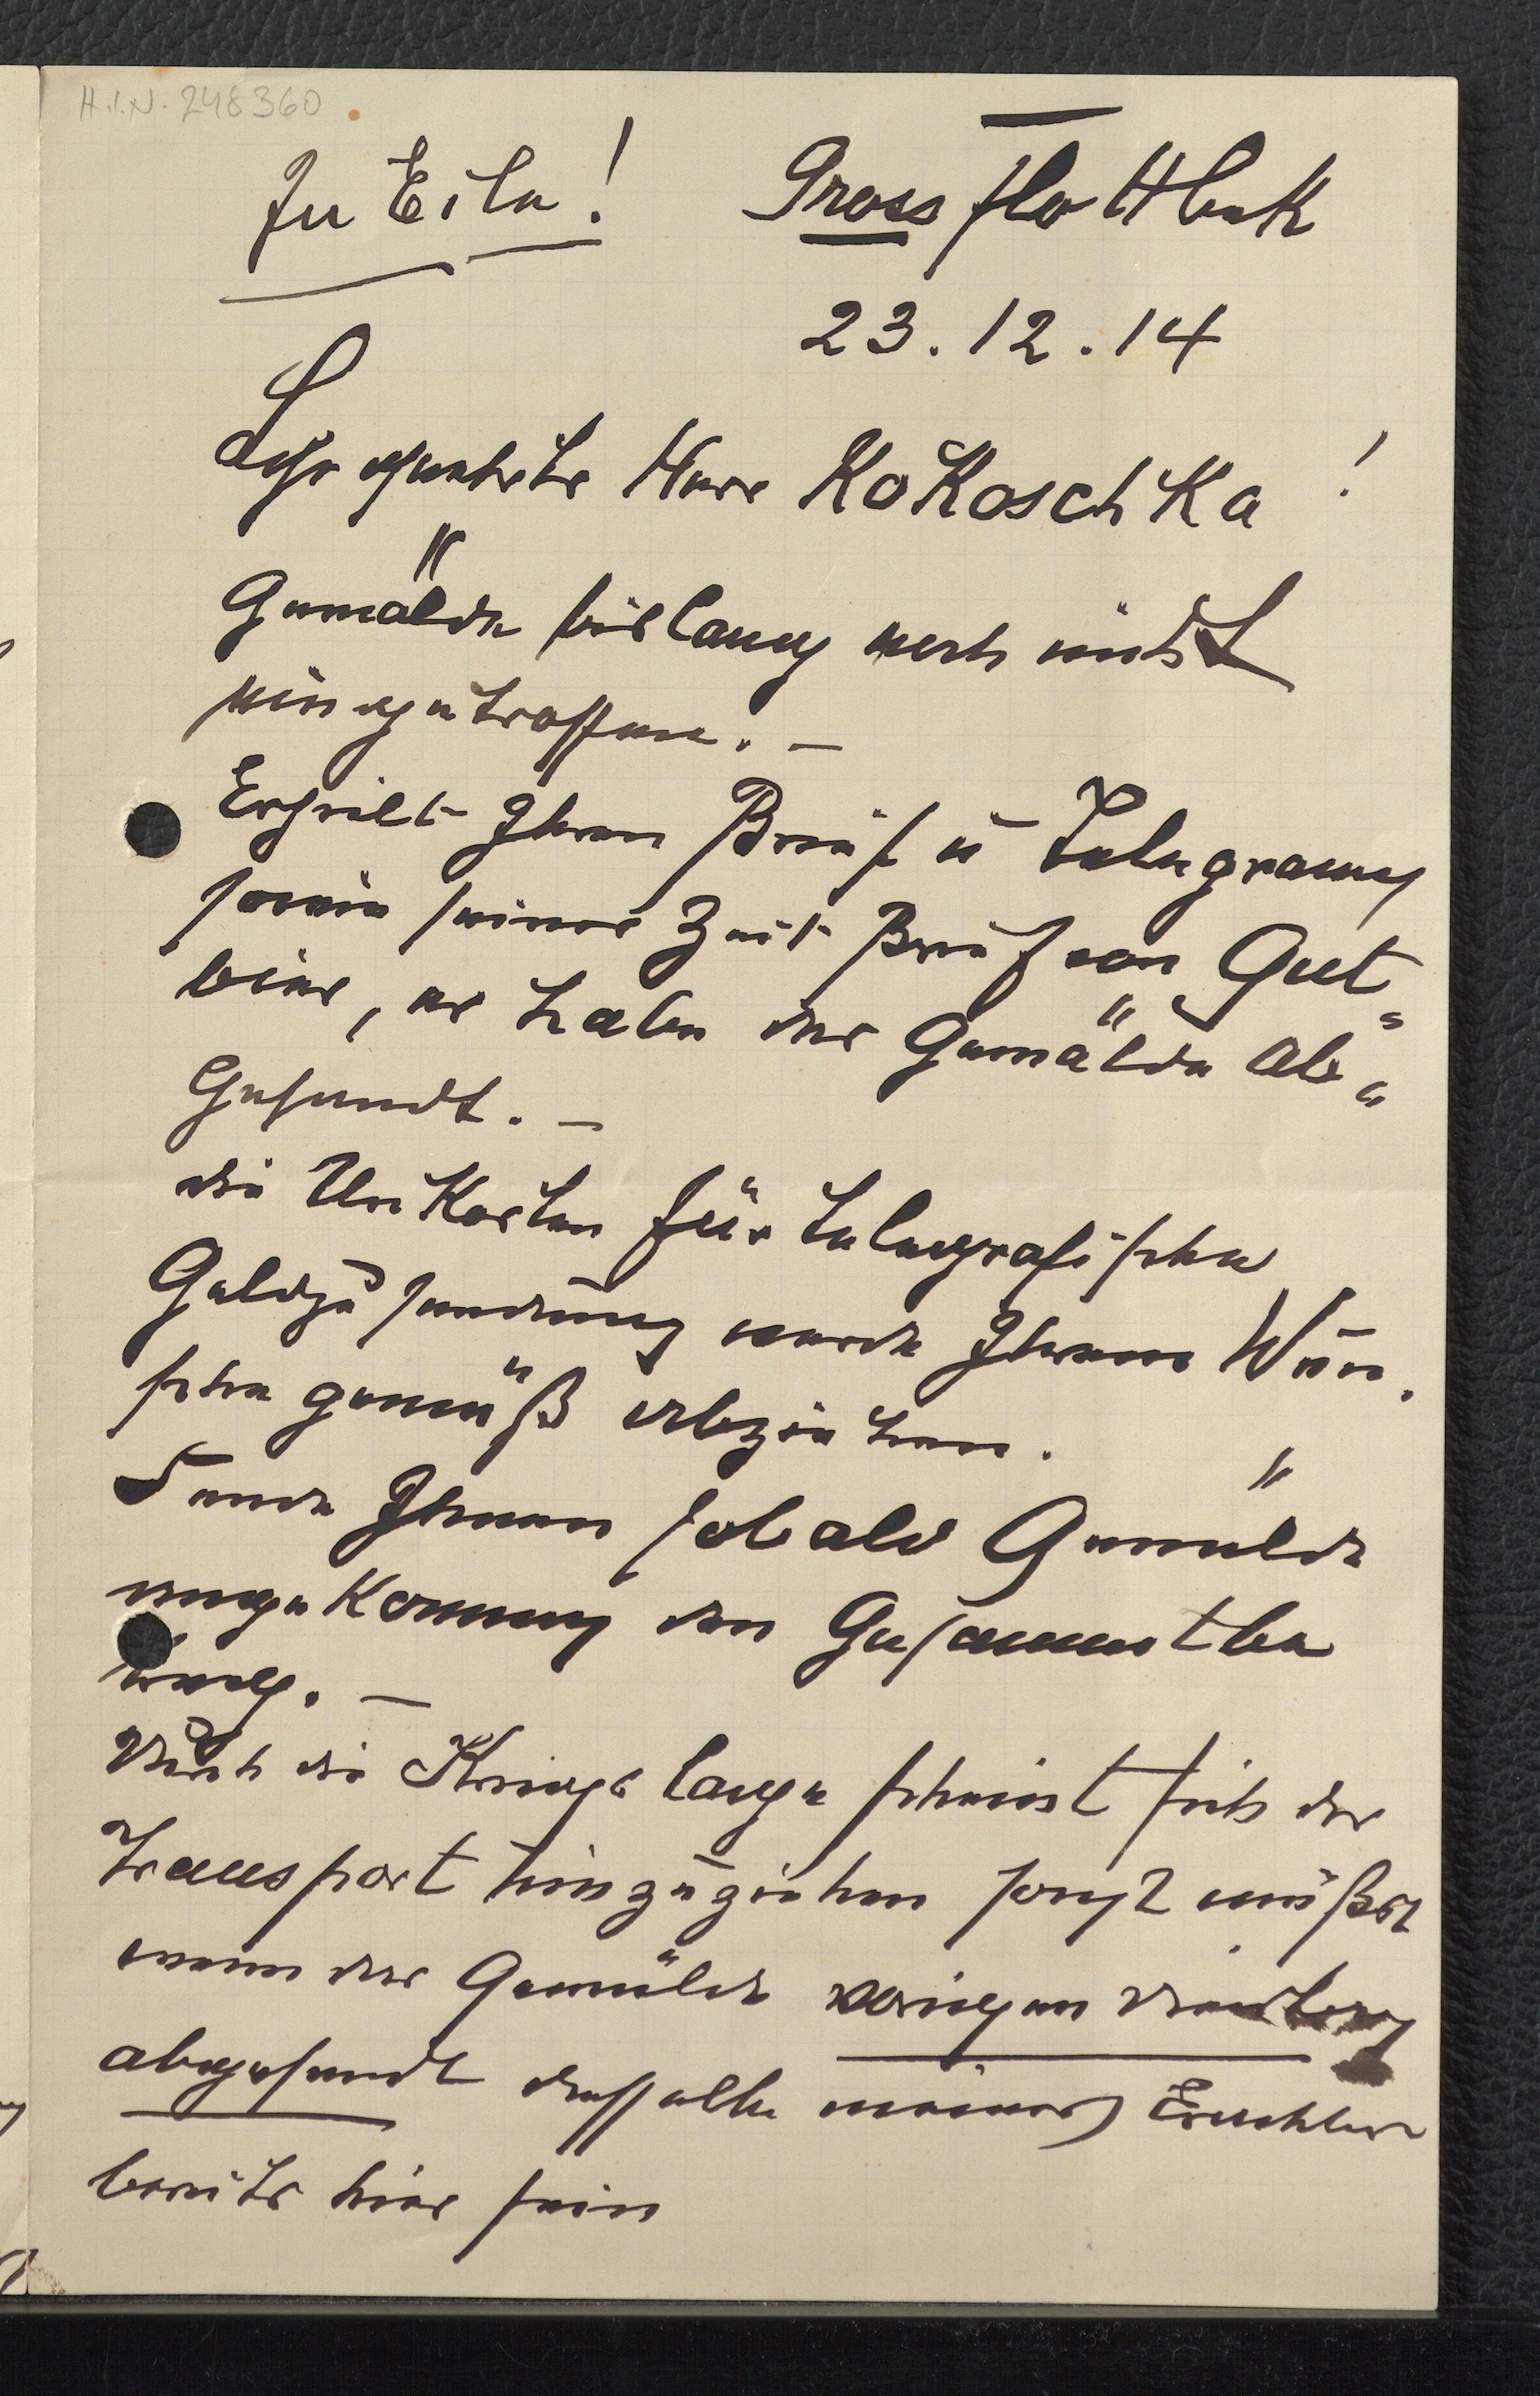 H.I.N. 248360
In Eile! Gross Flottbek
23.12.14
Sehr geehrter Herr Kokoschka!
Gemälde bislang noch nicht
eingetroffen. –
Erhielt Ihren Brief u Telegramm
sowie seiner Zeit Brief von Gut=
bier, er habe das Gemälde ab=
gesandt. –
die Unkosten für telegrafische
Geldzusendung werde Ihrem Wun.
sche gemäß abziehen.
Sende Ihnen sobald Gemälde
angekommen den Gesammtbe
trag. –
Durch die Kriegslage scheint sich der
Transport hinzuziehen sonst müßte
wenn das Gemälde vorigen Dienstag
abgesandt dasselbe meines Erachtens
bereits hier sein